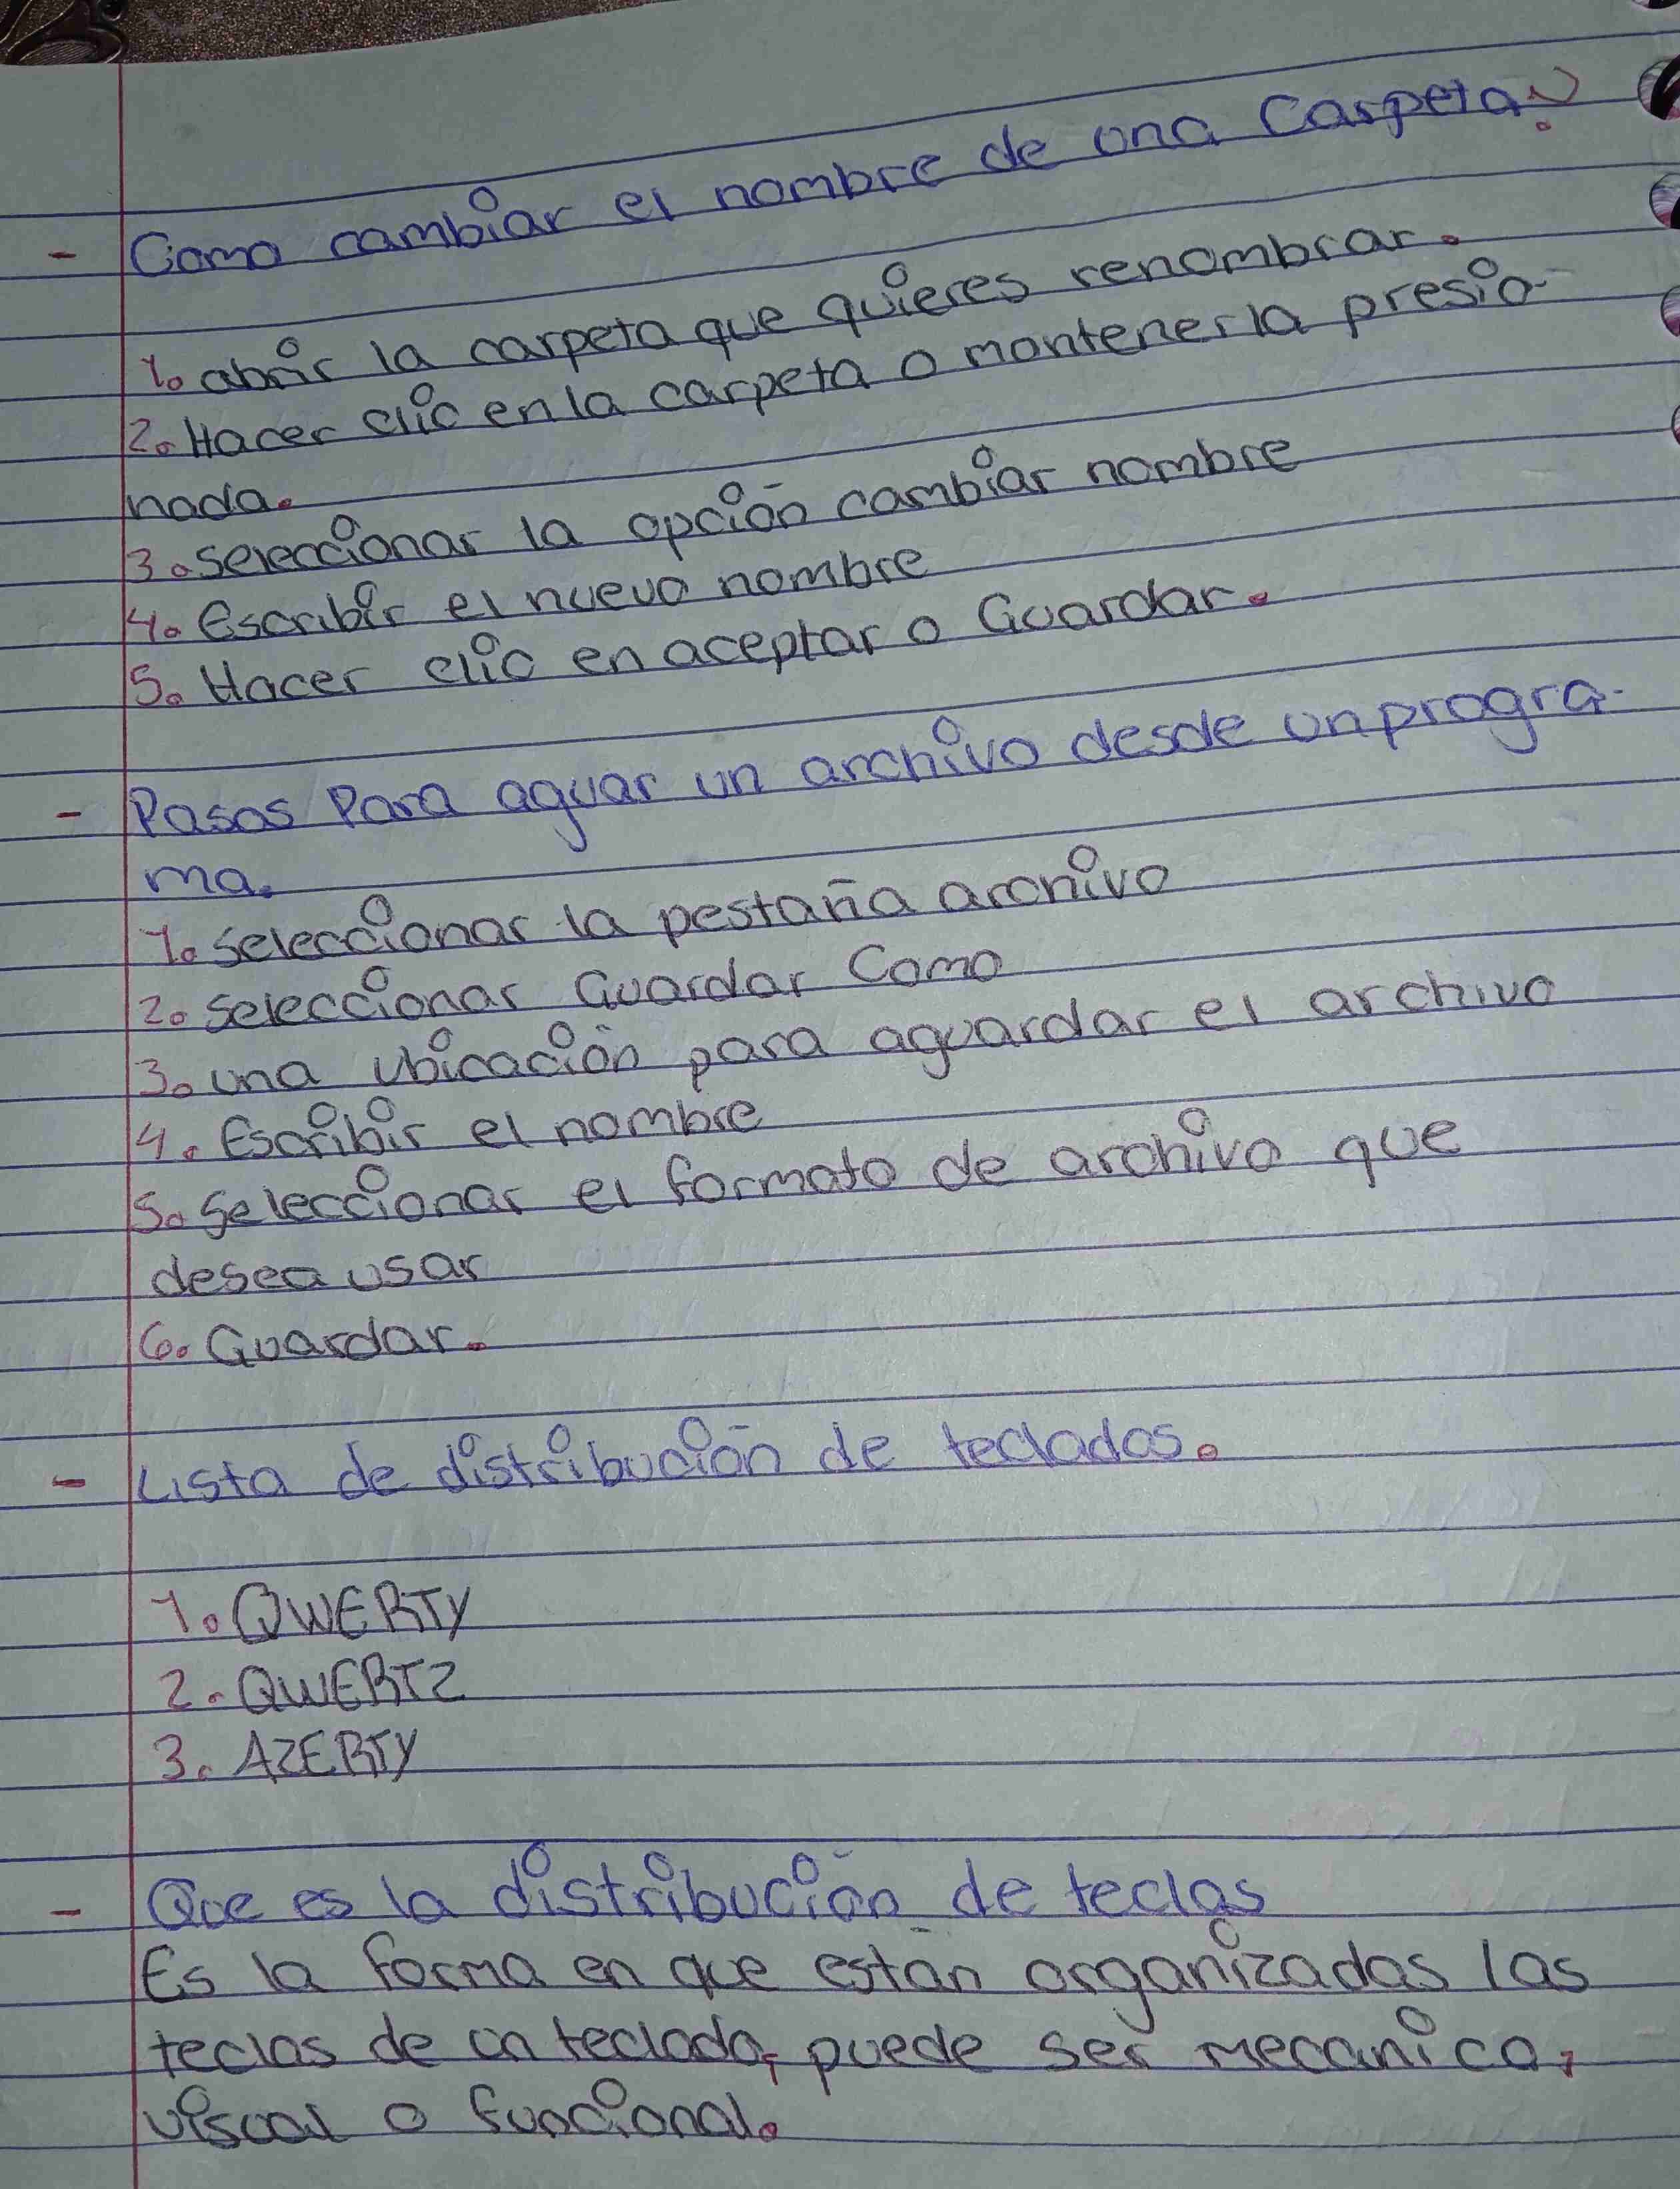 - Como cambiar el nombre de una Carpeta?
1. abrir la carpeta que quieres renombrar.
2. Hacer clic en la carpeta o mantenerla presio-
nada.
3. seleccionar la opción cambiar nombre
4. Escribir el nuevo nombre
5. Hacer clic en aceptar o Guardar.
- Pasos Para aguar un archivo desde un progra-
ma.
1. seleccionar la pestaña archivo
2. seleccionar Guardar Como
3. una ubicación para aguardar el archivo
4. Escribir el nombre
5. Seleccionar el formato de archivo que
desea usar
6. Guardar.
- Lista de distribución de teclados.
1. QWERTY
2. QWERTZ
3. AZERTY
- Que es la distribución de teclas
Es la forma en que están organizadas las
teclas de un teclado, puede ser mecanica,
visual o funcional.